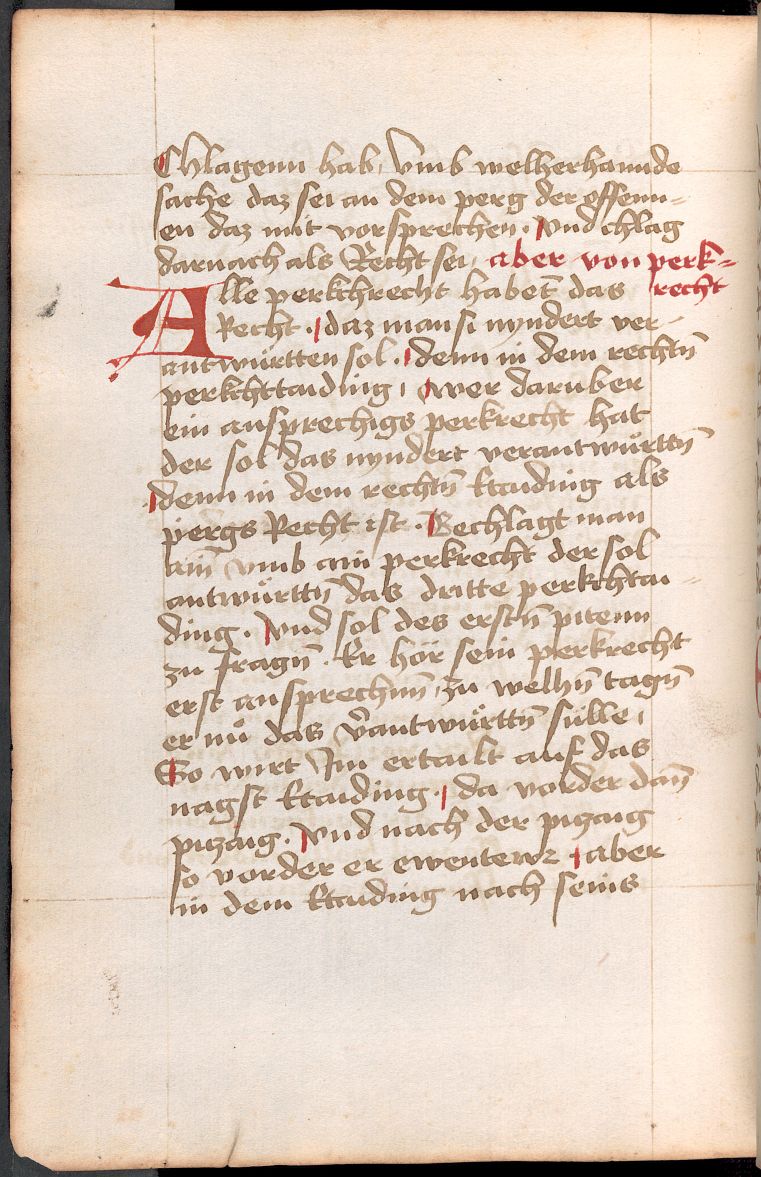 Chlagenn hab, Vmb welherhannde
sache daz sei an dem perg der offenn=
en daz mit vorsprechen. Vnd chlag
darnach als Recht sei, aber von perk=
recht
Alle perkchrecht habent̄ das
Recht. daz man si nyndert ver-
antwürtten sol. denn in dem rechtn̄
perkchttaiding, wer daruber
ein ansprechigs perkrecht hat
der sol das nyndert verantwürttn̄
denn in dem rechtn̄ ktaiding als
pergs Recht ist. Bechlagt man
ain̄ vmb ain perkrecht der sol
antwürttn̄ das dritte perkchtai-
ding. Vnd sol des erstn̄ pitenn
zu fragn̄. Er hör sein perkrecht
erst ansprechnn̄, zu welhn̄ tagn̄
er nu das v̄antwürttn̄ sülle,
So wirt Im ertailt auf das
nagst ktaiding. da vorder dan̄
pizaig. Vnd nach der pizaig
so vorder er ewentewr. aber
in dem ktaiding nach seins